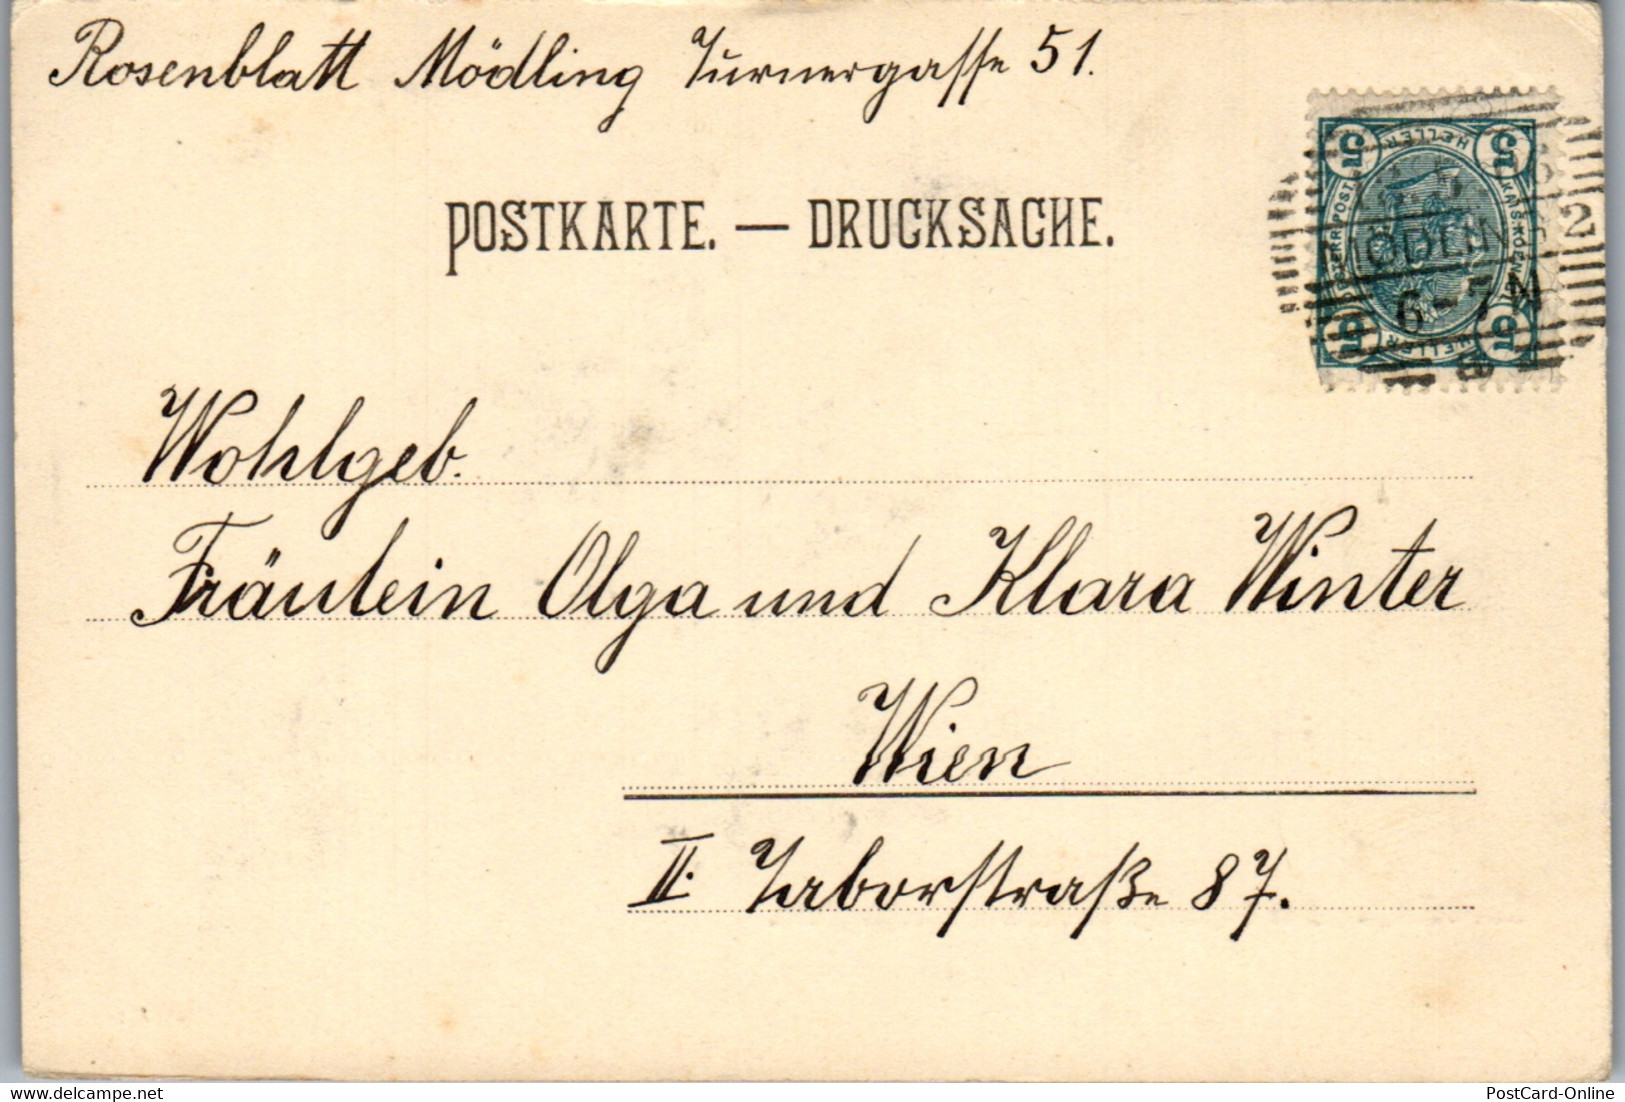 Rosenblatt Mödling Turnergasse 51.
POSTKARTE. — DRUCKSACHE.
5 HELLER 5
6-7N
2
5 HELLER 5
Wohlgeb.
Fräulein Olga und Klara Winter
Wien
II. Taborstraße 87.
delcampe.net
PostCard-Online